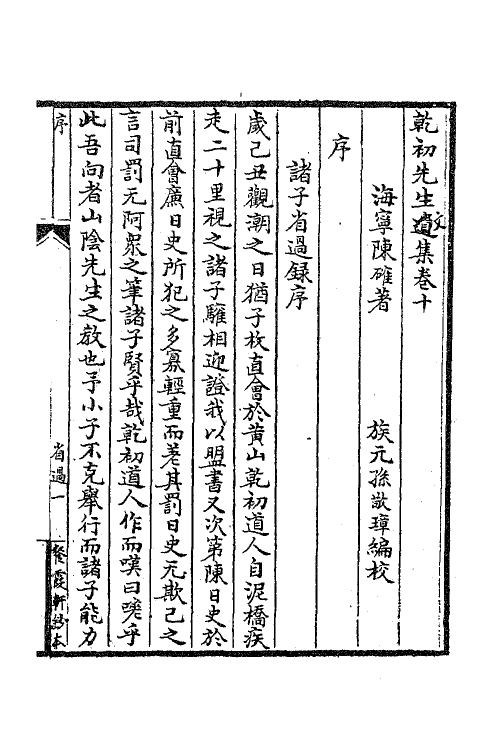 乾初先生文集卷十
海寧陳確著　族元孫敬璋編校
序
諸子省過録序
歲己丑觀潮之日猶子枚直會於黄山乾初道人自泥橋疾
走二十里視之諸子驩相迎證我以盟書又次第陳日史於
前直會廉日史所犯之多寡輕重而差其罰日史无欺己之
言司罰无阿衆之筆諸子賢乎哉乾初道人作而嘆曰嗟乎
此吾向者山陰先生之教也予小子不克舉行而諸子能力
序
省過一
餐霞軒鈔本